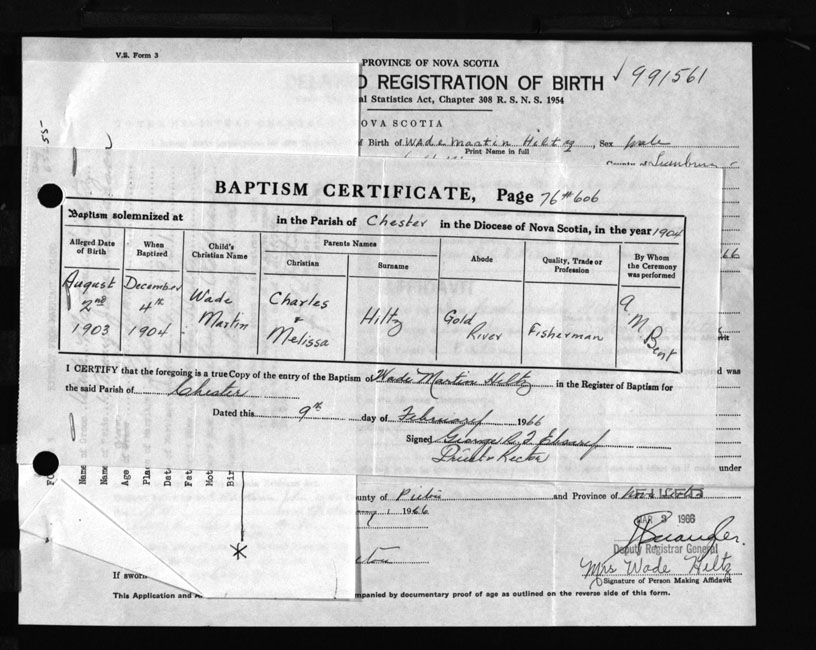 V.S. Form 3
PROVINCE OF NOVA SCOTIA
D REGISTRATION OF BIRTH
991561
al Statistics Act, Chapter 308 R. S. N. S. 1954
OVA SCOTIA
f Birth of Wade Martin Hiltz, Sex male
Print Name in full
BAPTISM CERTIFICATE, Page 76 # 606
Baptism solemnized at in the Parish of Chester in the Diocese of Nova Scotia, in the year 1904
Alleged Date of Birth
When Baptized
Child's Christian Name
Parents Names
Christian
Surname
Abode
Quality, Trade or Profession
By Whom the Ceremony was performed
August 2nd 1903
December 4th 1904
Wade Martin
Charles & Melissa
Hiltz
Gold River
Fisherman
A M Bent
66
I CERTIFY that the foregoing is a true Copy of the entry of the Baptism of Wade Martin Hiltz in the Register of Baptism for
the said Parish of Chester
Dated this 9th day of February 1966
Signed George
Priest & Rector
d was
under
Name of
Name of
Age
Plac
Date
Fat
Mot
Bir
unty of Pictou and Province of Nova Scotia
y 1966
MAR 3 1966
Deputy Registrar General
Mrs Wade Hiltz
Signature of Person Making Affidavit
If sworn
This Application and A mpanied by documentary proof of age as outlined on the reverse side of this form.